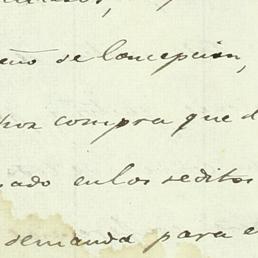 eño de Concepcion,
por compra que d
sado en los reditos
demanda para e